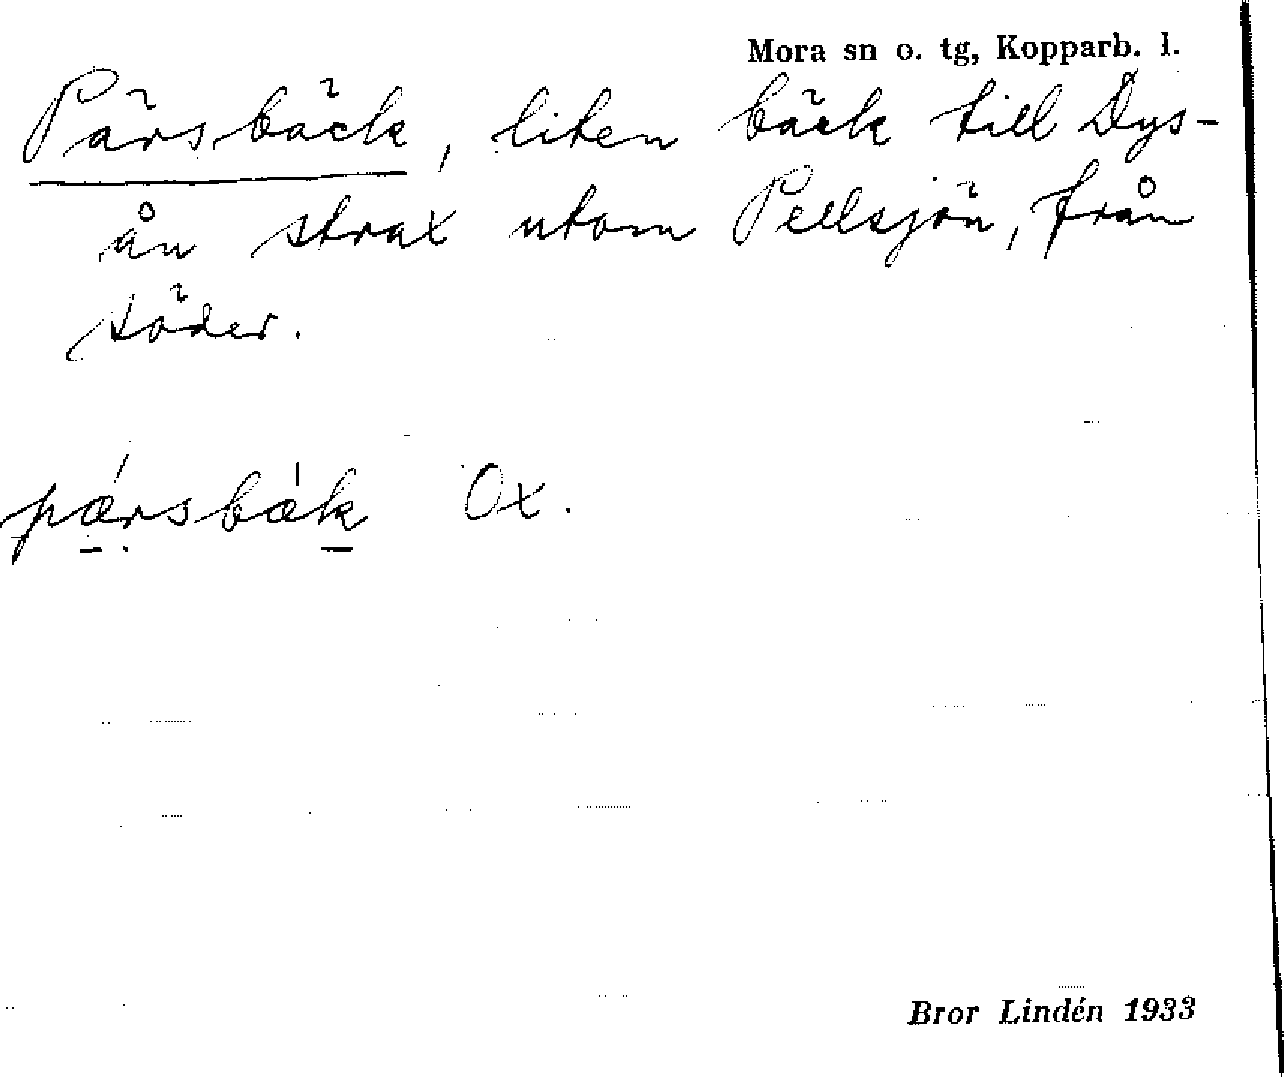 Mora sn o. tg, Kopparb. l.
Pärsbäck, liten bäck till Dys-
ån strax utom Pellsjön, från
söder.
pǽrsbæ̀k Ox.
Bror Lindén 1933